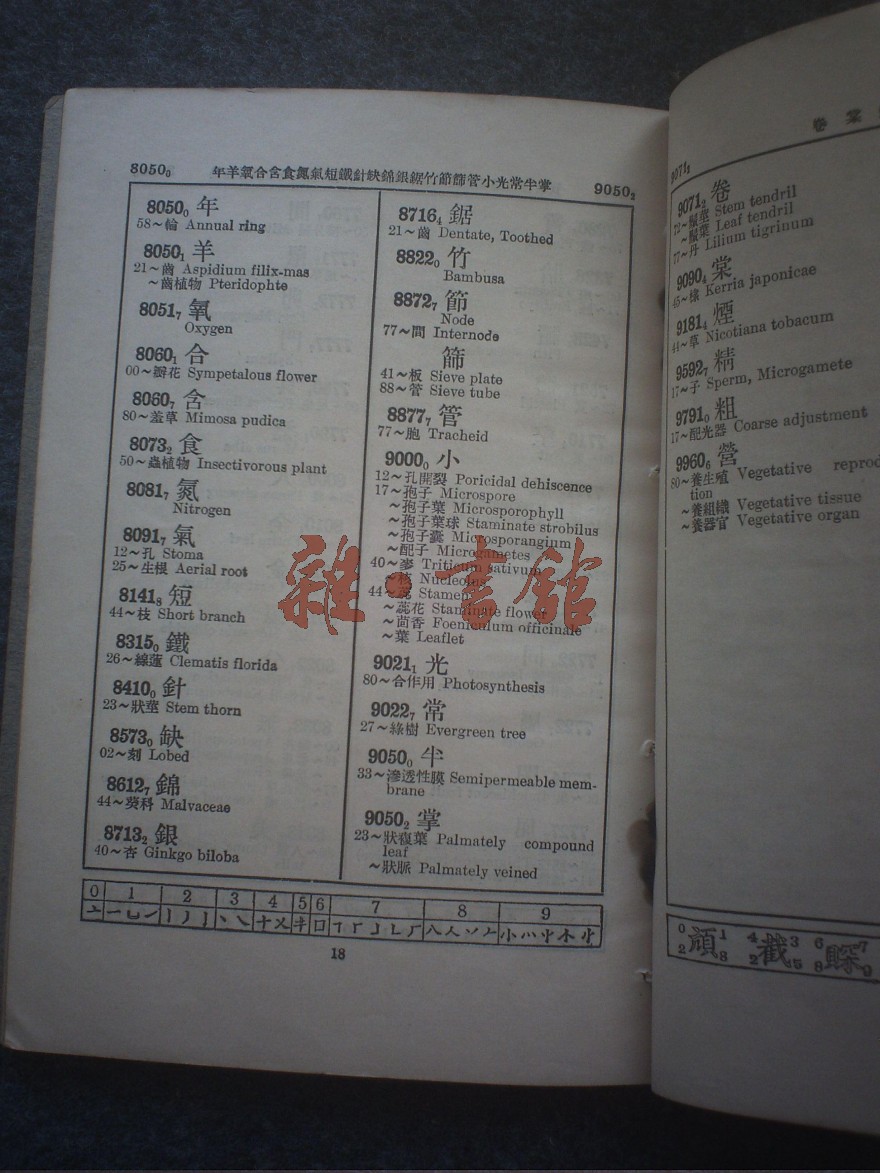 8050₀ 年羊氧合含食氮氣短鐵針缺錦銀鋸竹節篩管小光常半掌 9050₂
8050₀ 年
58～輪 Annual ring
8050₁ 羊
21～齒 Aspidium filix-mas
～齒植物 Pteridophte
8051₇ 氧
Oxygen
8060₁ 合
00～瓣花 Sympetalous flower
8060₇ 含
80～羞草 Mimosa pudica
8073₂ 食
50～蟲植物 Insectivorous plant
8081₇ 氮
Nitrogen
8091₇ 氣
12～孔 Stoma
25～生根 Aerial root
8141₈ 短
44～枝 Short branch
8315₀ 鐵
26～線蓮 Clematis florida
8410₀ 針
23～狀莖 Stem thorn
8573₀ 缺
02～刻 Lobed
8612₇ 錦
44～葵科 Malvaceae
8713₂ 銀
40～杏 Ginkgo biloba
8716₄ 鋸
21～齒 Dentate, Toothed
8822₀ 竹
Bambusa
8872₇ 節
Node
77～間 Internode
篩
41～板 Sieve plate
88～管 Sieve tube
8877₇ 管
77～胞 Tracheid
9000₀ 小
12～孔開裂 Poricidal dehiscence
17～孢子 Microspore
～孢子葉 Microsporophyll
～孢子葉球 Staminate strobilus
～孢子囊 Microsporangium
～配子 Microgametes
40～麥 Triticum sativum
～核 Nucleolus
44～蕊 Stamen
～蕊花 Staminate flower
～茴香 Foeniculum officinale
～葉 Leaflet
9021₁ 光
80～合作用 Photosynthesis
9022₇ 常
27～綠樹 Evergreen tree
9050₀ 半
33～滲透性膜 Semipermeable mem-
brane
9050₂ 掌
23～狀複葉 Palmately compound
leaf
～狀脈 Palmately veined
0 1 2 3 4 5 6 7 8 9
18
雜·書館
9071₂
卷棠
9071₂ 卷
72～鬚莖 Stem tendril
～鬚葉 Leaf tendril
77～丹 Lilium tigrinum
9090₄ 棠
45～棣 Kerria japonicae
9181₄ 煙
44～草 Nicotiana tobacum
9592₇ 精
17～子 Sperm, Microgamete
9791₀ 粗
17～配光器 Coarse adjustment
9960₆ 營
80～養生殖 Vegetative reprod
tion
～養組織 Vegetative tissue
～養器官 Vegetative organ